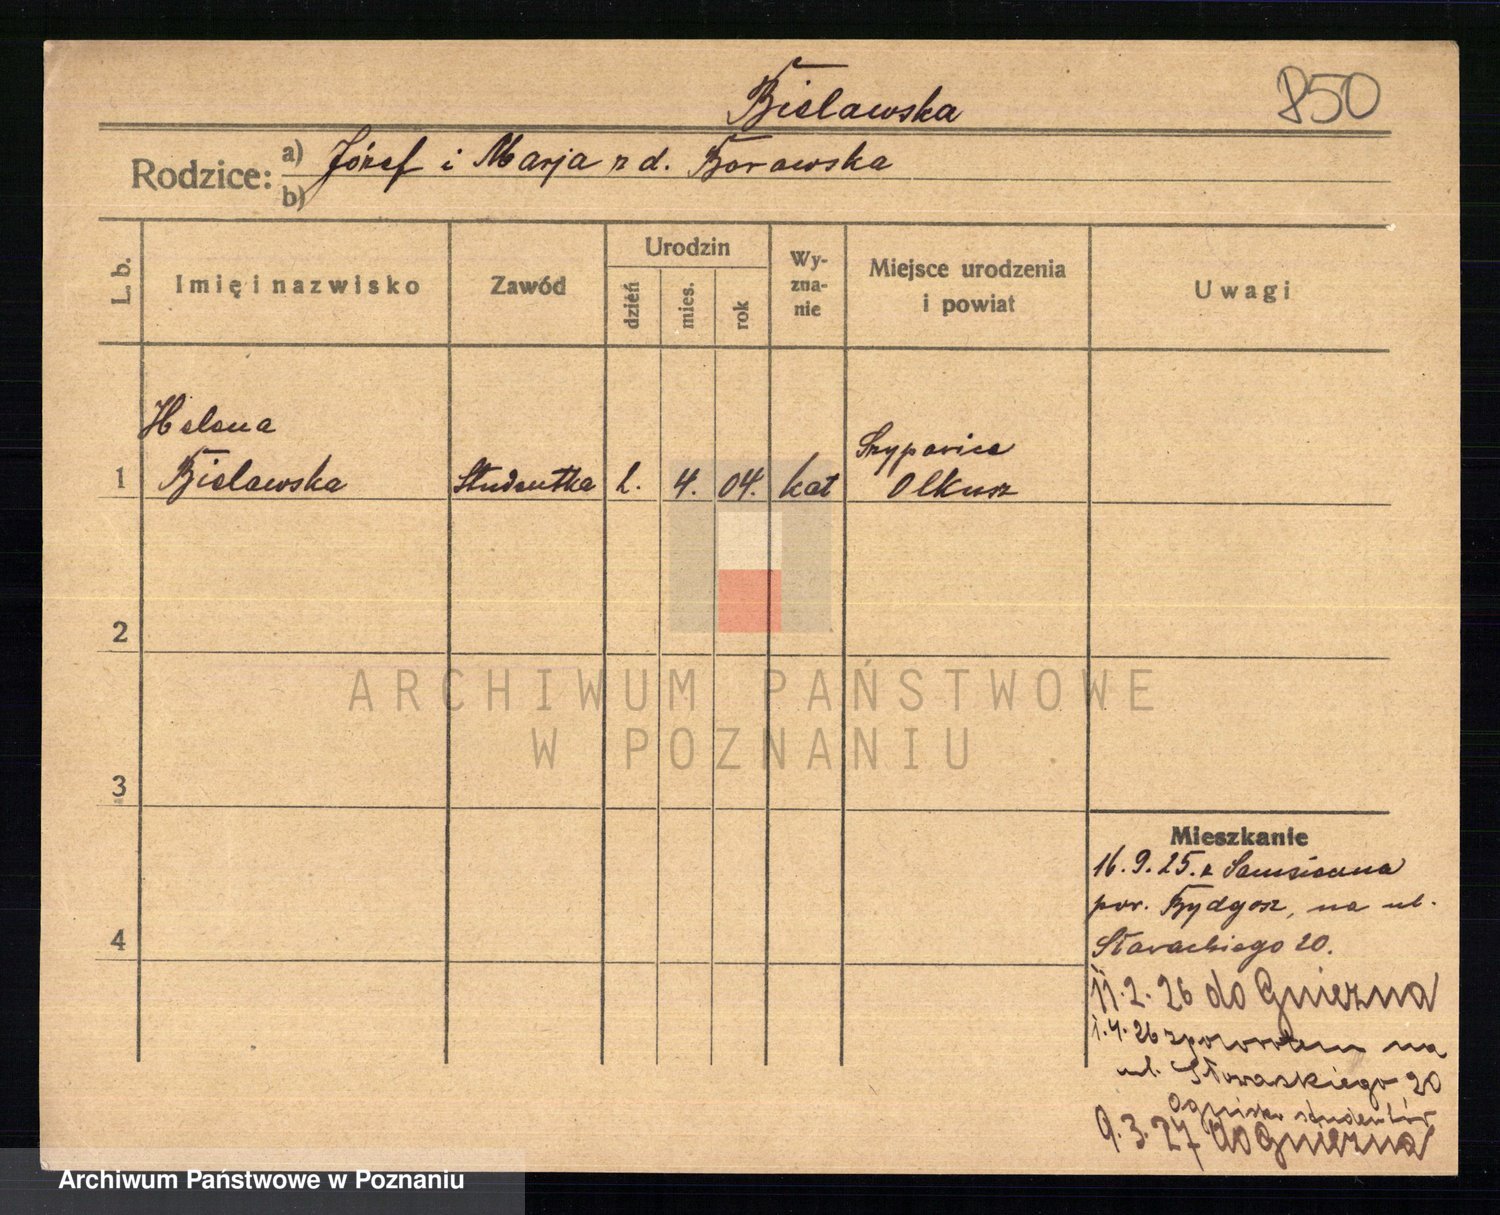 Bielawska
850
Rodzice: a) Józef i Marja z d. Borowska
b)
L. b.
Imię i nazwisko
Zawód
Urodzin
dzień
mies.
rok
Wy-
zna-
nie
Miejsce urodzenia
i powiat
Uwagi
Helena
Szypowice
1 Bielawska Studentka 2. 4. 04. kat Olkusz
2
ARCHIWUM PAŃSTWOWE
W POZNANIU
3
Mieszkanie
16. 9. 25. z
pow. Bydgosz, na ul.
4
Słowackiego 20.
11. 2. 26 do Gniezna
1. 4. 26 zpowrotem na
ul. Słowackiego 20
Ognisko studentów
9. 3. 27 do Gniezna
Archiwum Państwowe w Poznaniu